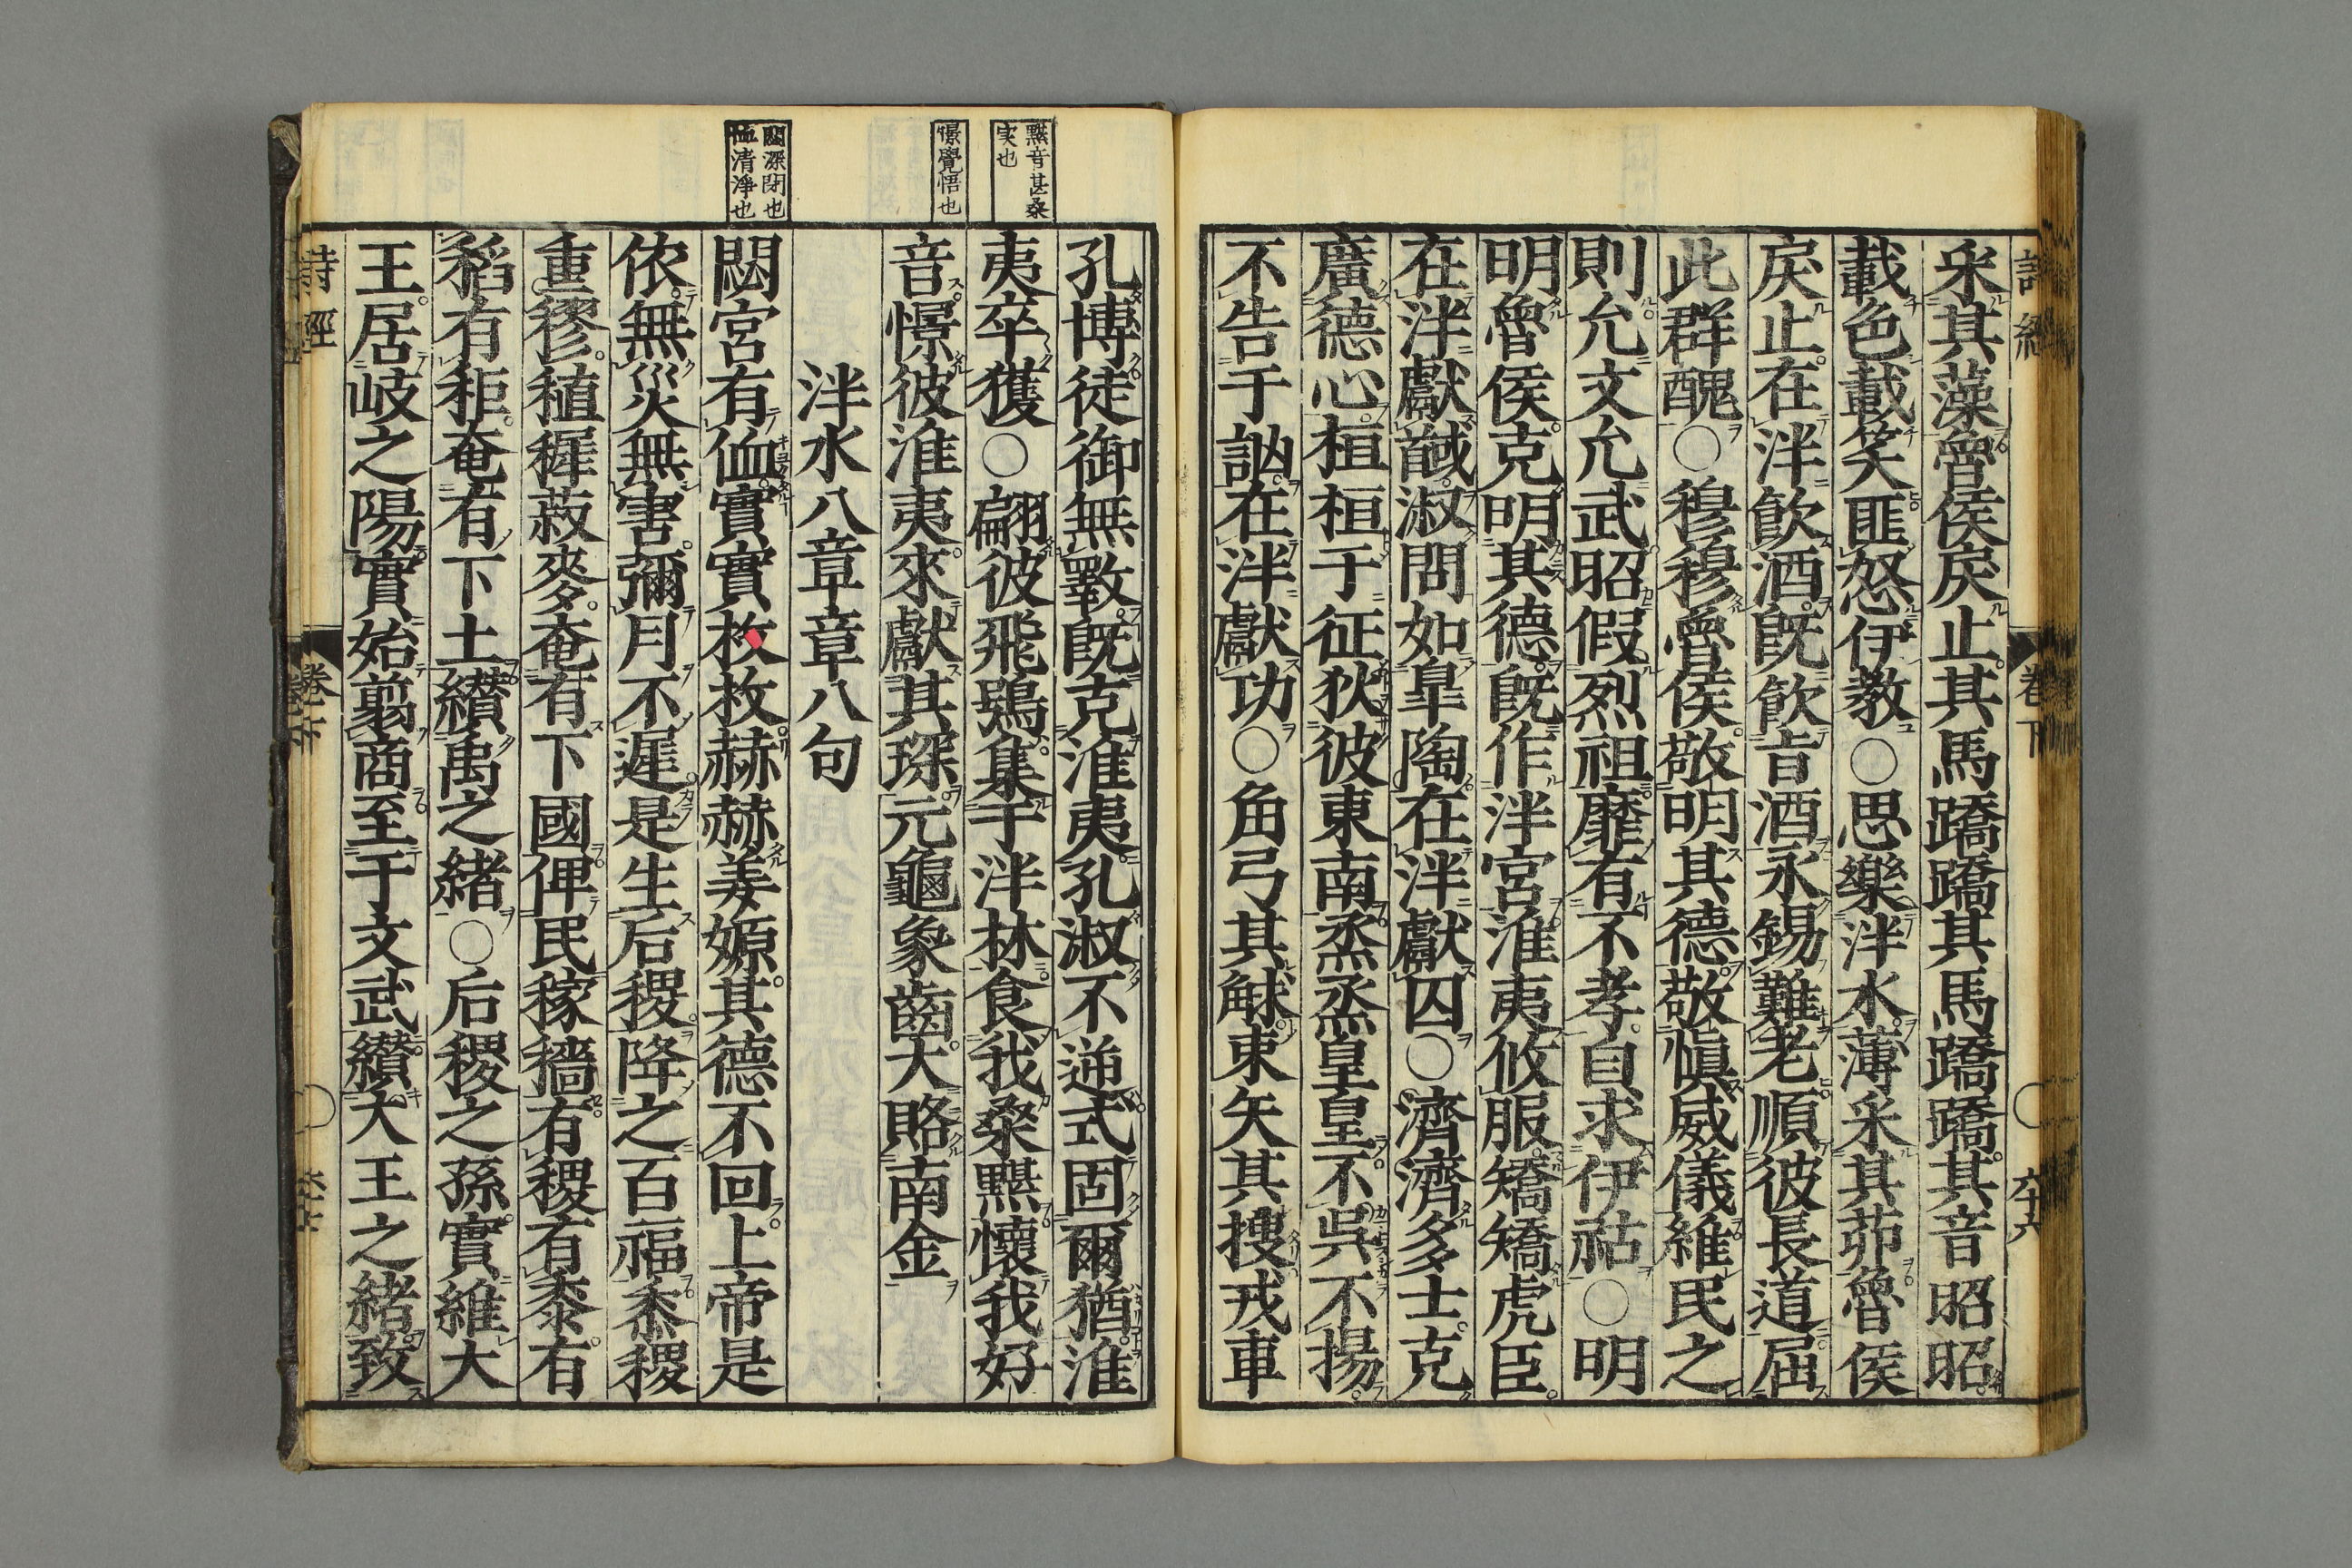 采其藻魯侯戾止其馬蹻蹻其馬蹻蹻其音昭昭
載色載笑匪怒伊教○思樂泮水薄采其茆魯侯
戾止在泮飲酒既飲旨酒永錫難老順彼長道屈
此群醜○穆穆魯侯敬明其德敬慎威儀維民之
則允文允武昭假烈祖靡有不孝自求伊祜○明
明魯侯克明其德既作泮宮淮夷攸服矯矯虎臣
在泮獻馘淑問如皐陶在泮獻囚○濟濟多士克
廣德心桓桓于征狄彼東南烝烝皇皇不吳不揚
不告于訩在泮獻功○角弓其觩束矢其搜戎車
孔博徒御無斁既克淮夷孔淑不逆式固爾猶淮
夷卒獲○翩彼飛鴞集于泮林食我桑黮懷我好
音憬彼淮夷來獻其琛元龜象齒大賂南金
泮水八章章八句
閟宮有侐實實枚枚赫赫姜嫄其德不回上帝是
依無災無害彌月不遲是生后稷降之百福黍稷
重穋稙稺菽麥奄有下國俾民稼穡有稷有黍有
稻有秬奄有下土纘禹之緒○后稷之孫實維大
王居岐之陽實始翦商至于文武纘大王之緒致
黮音甚桑
実也
憬覺悟也
閟深閉也
侐清淨也
卷下
六十六
詩經